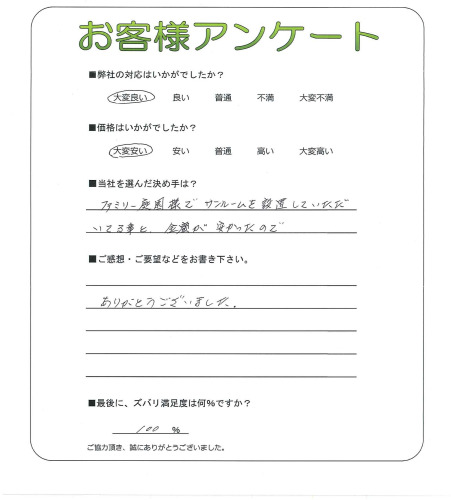 お客様アンケート
■弊社の対応はいかがでしたか？
大変良い 良い 普通 不満 大変不満
■価格はいかがでしたか？
大変安い 安い 普通 高い 大変高い
■当社を選んだ決め手は？
ファミリー庭園様でサンルームを設置していただ
いてる事と、金額が安かったので
■ご感想・ご要望などをお書き下さい。
ありがとうございました。
■最後に、ズバリ満足度は何%ですか？
100 %
ご協力頂き、誠にありがとうございました。